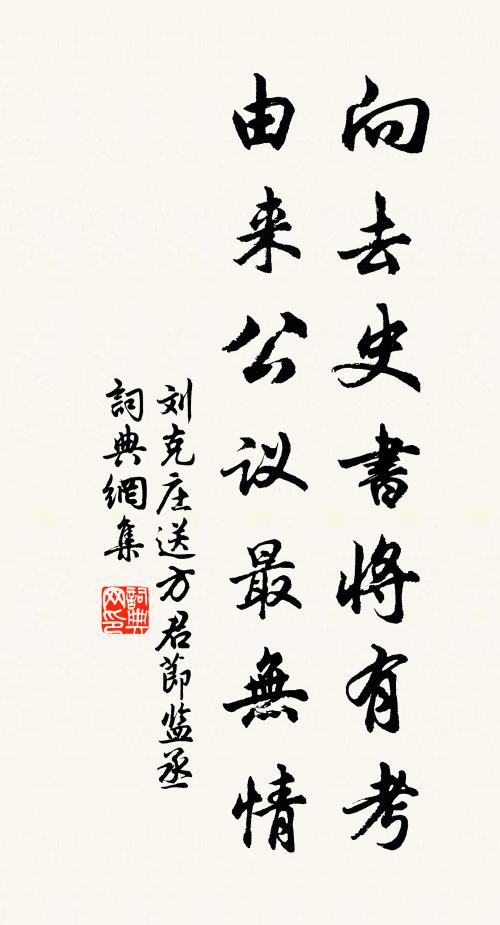 向去史書將有考
由来公议最無情
刘克庄送方君節监丞
詞典網集
詞典
网印